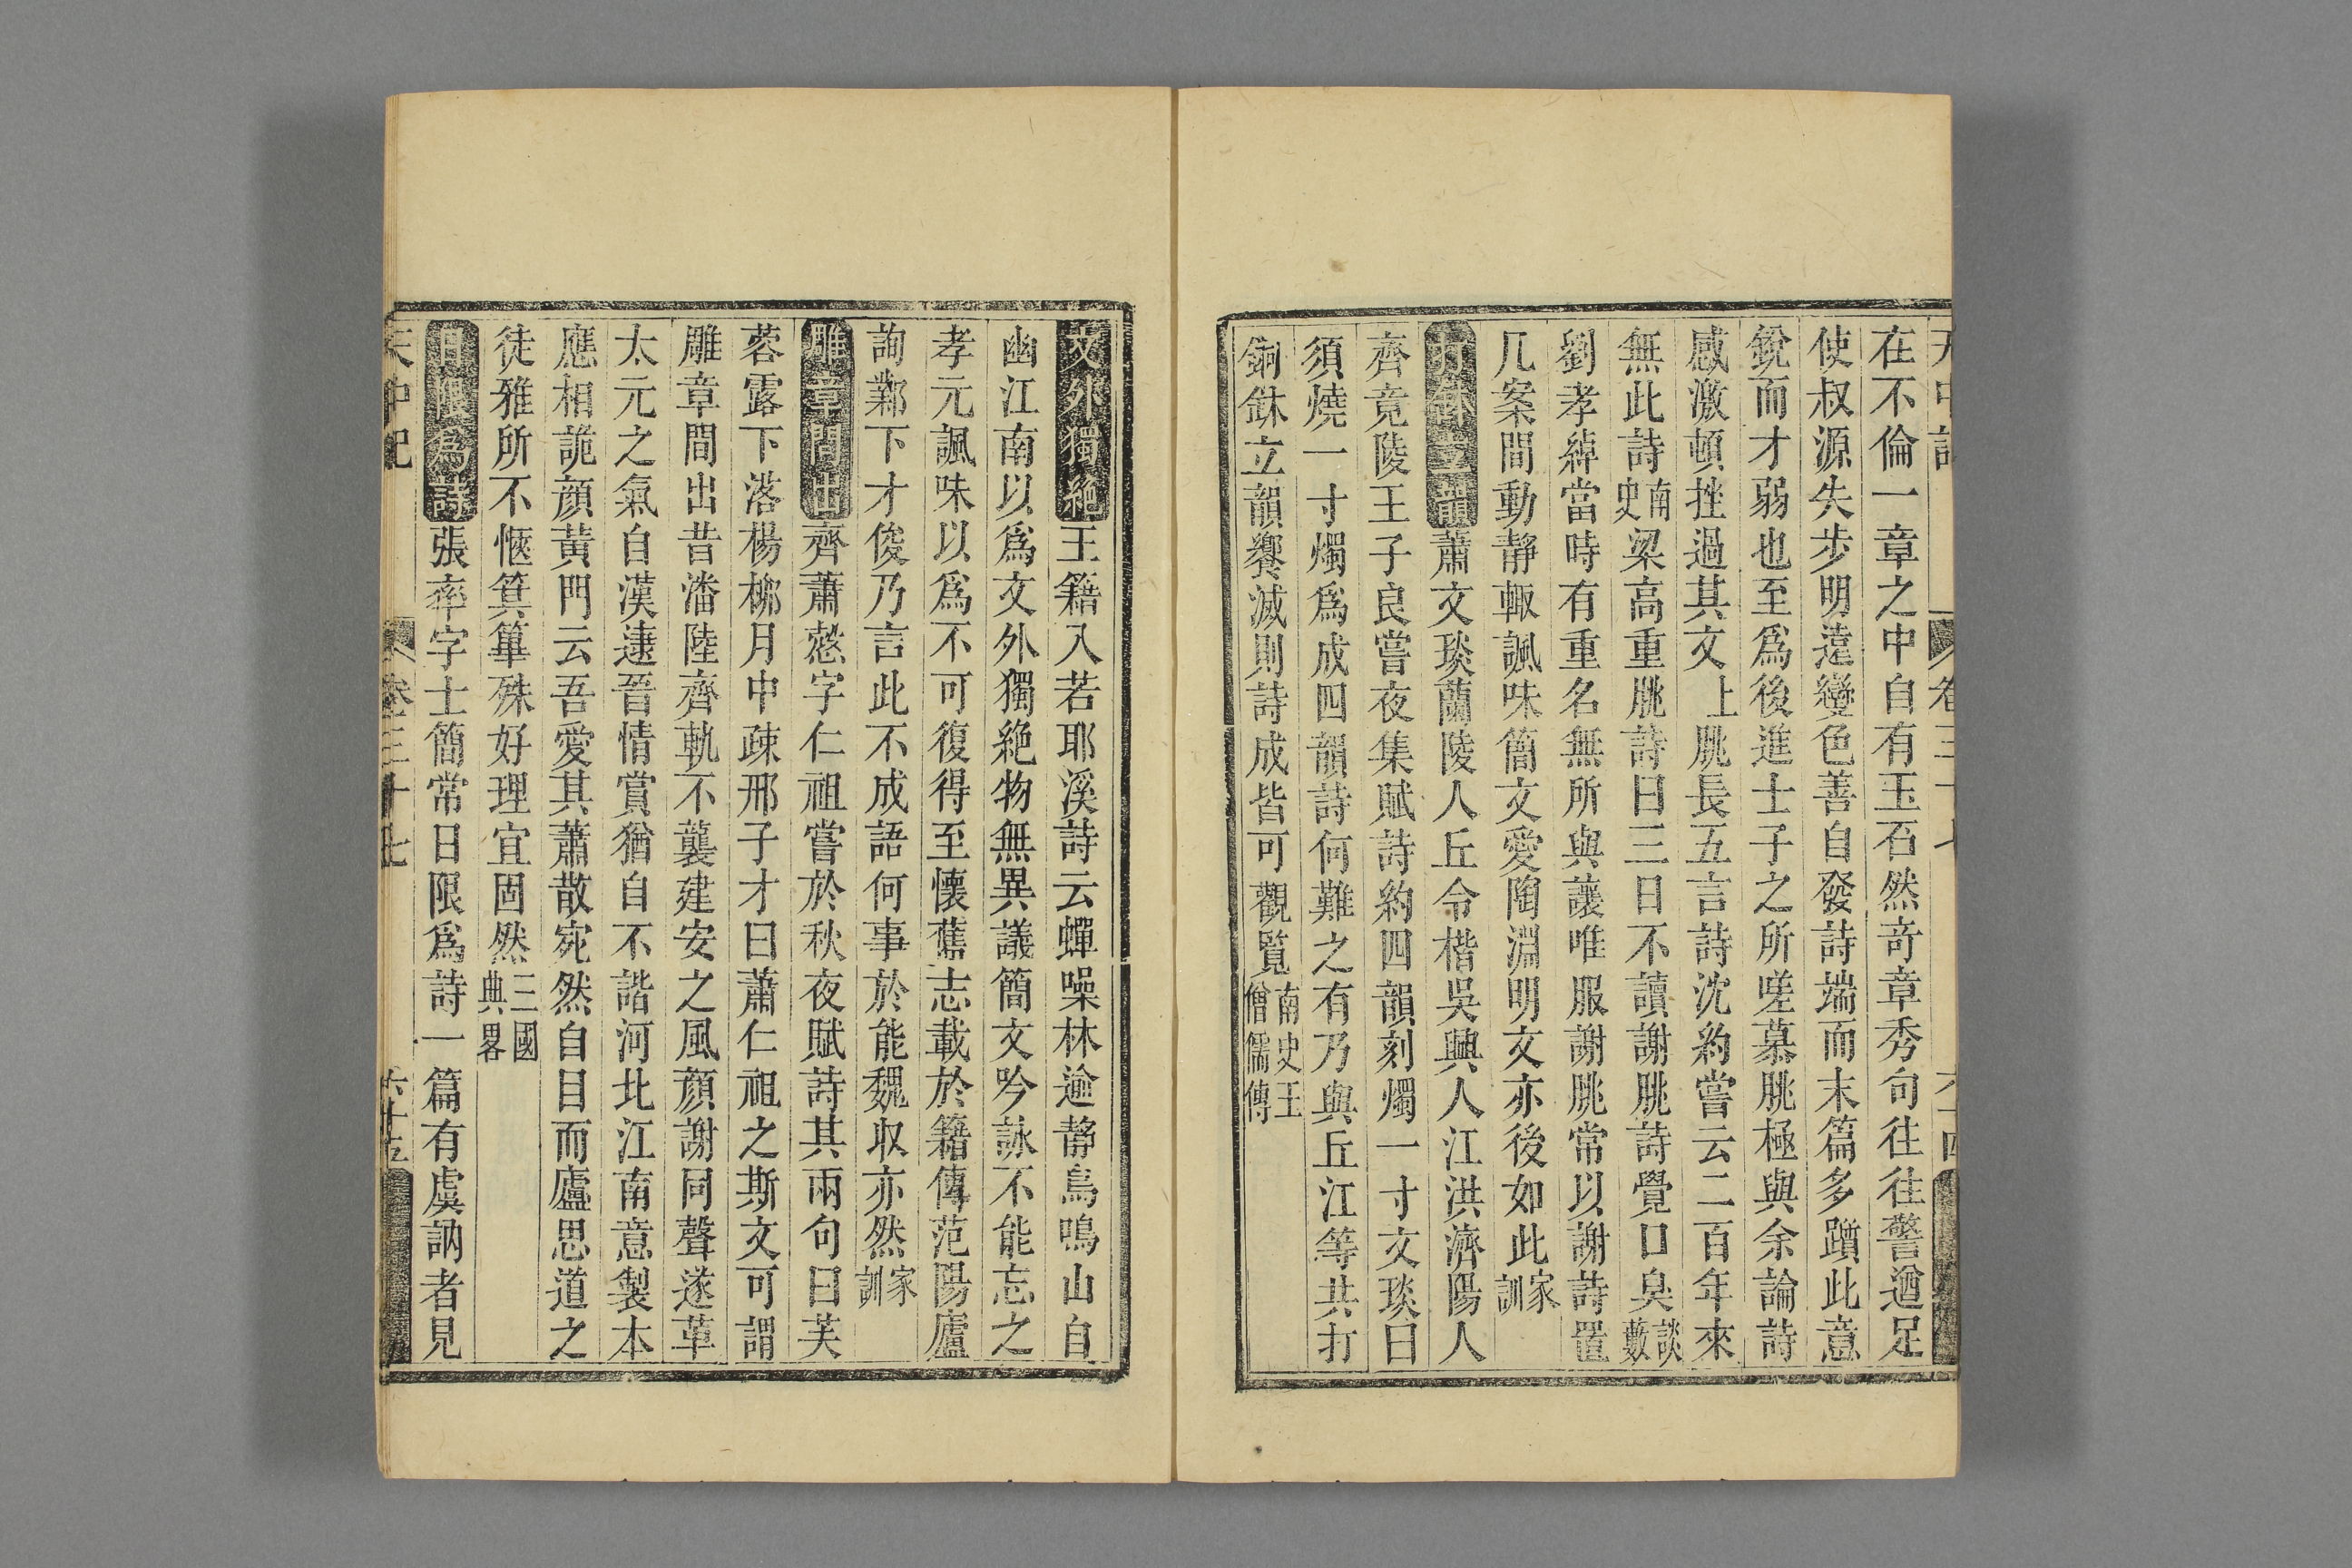 在不倫一章之中自有玉石然奇章秀句往往警遒足
使叔源失步明遠變色善自發詩端而末篇多躓此意
銳而才弱也至爲後進士子之所嗟慕朓極與余論詩
感激頓挫過其文上朓長五言詩沈約嘗云二百年來
無此詩南史梁高重朓詩曰三日不讀謝朓詩覺口臭談藪
劉孝綽當時有重名無所與讓唯服謝朓常以謝詩置
几案間動靜輙諷味簡文愛陶淵明文亦後如此家訓
打鉢立韻蕭文琰蘭陵人丘令楷吳興人江洪濟陽人
齊竟陵王子良嘗夜集賦詩約四韻刻燭一寸文琰曰
須燒一寸燭爲成四韻詩何難之有乃與丘江等共打
銅鉢立韻響滅則詩成皆可觀覧南史王僧儒傳
文外獨絶王籍入若耶溪詩云蟬噪林逾靜鳥鳴山自
幽江南以爲文外獨絶物無異議簡文吟詠不能忘之
孝元諷味以爲不可復得至懷舊志載於籍傳范陽廬
詢鄴下才俊乃言此不成語何事於能魏収亦然家訓
雕章間出齊蕭慤字仁祖嘗於秋夜賦詩其兩句曰芙
蓉露下落楊栁月中疎邢子才曰蕭仁祖之斯文可謂
雕章間出昔潘陸齊軌不襲建安之風顔謝同聲遂革
太元之氣自漢逮晉情賞猶自不諧河北江南意製本
應相詭顔黃門云吾愛其蕭散宛然自目而廬思道之
徒雅所不愜箕畢殊好理宜固然三國典畧
日限爲詩張率字士簡常日限爲詩一篇有虞訥者見
天中記 卷三十七 六十五